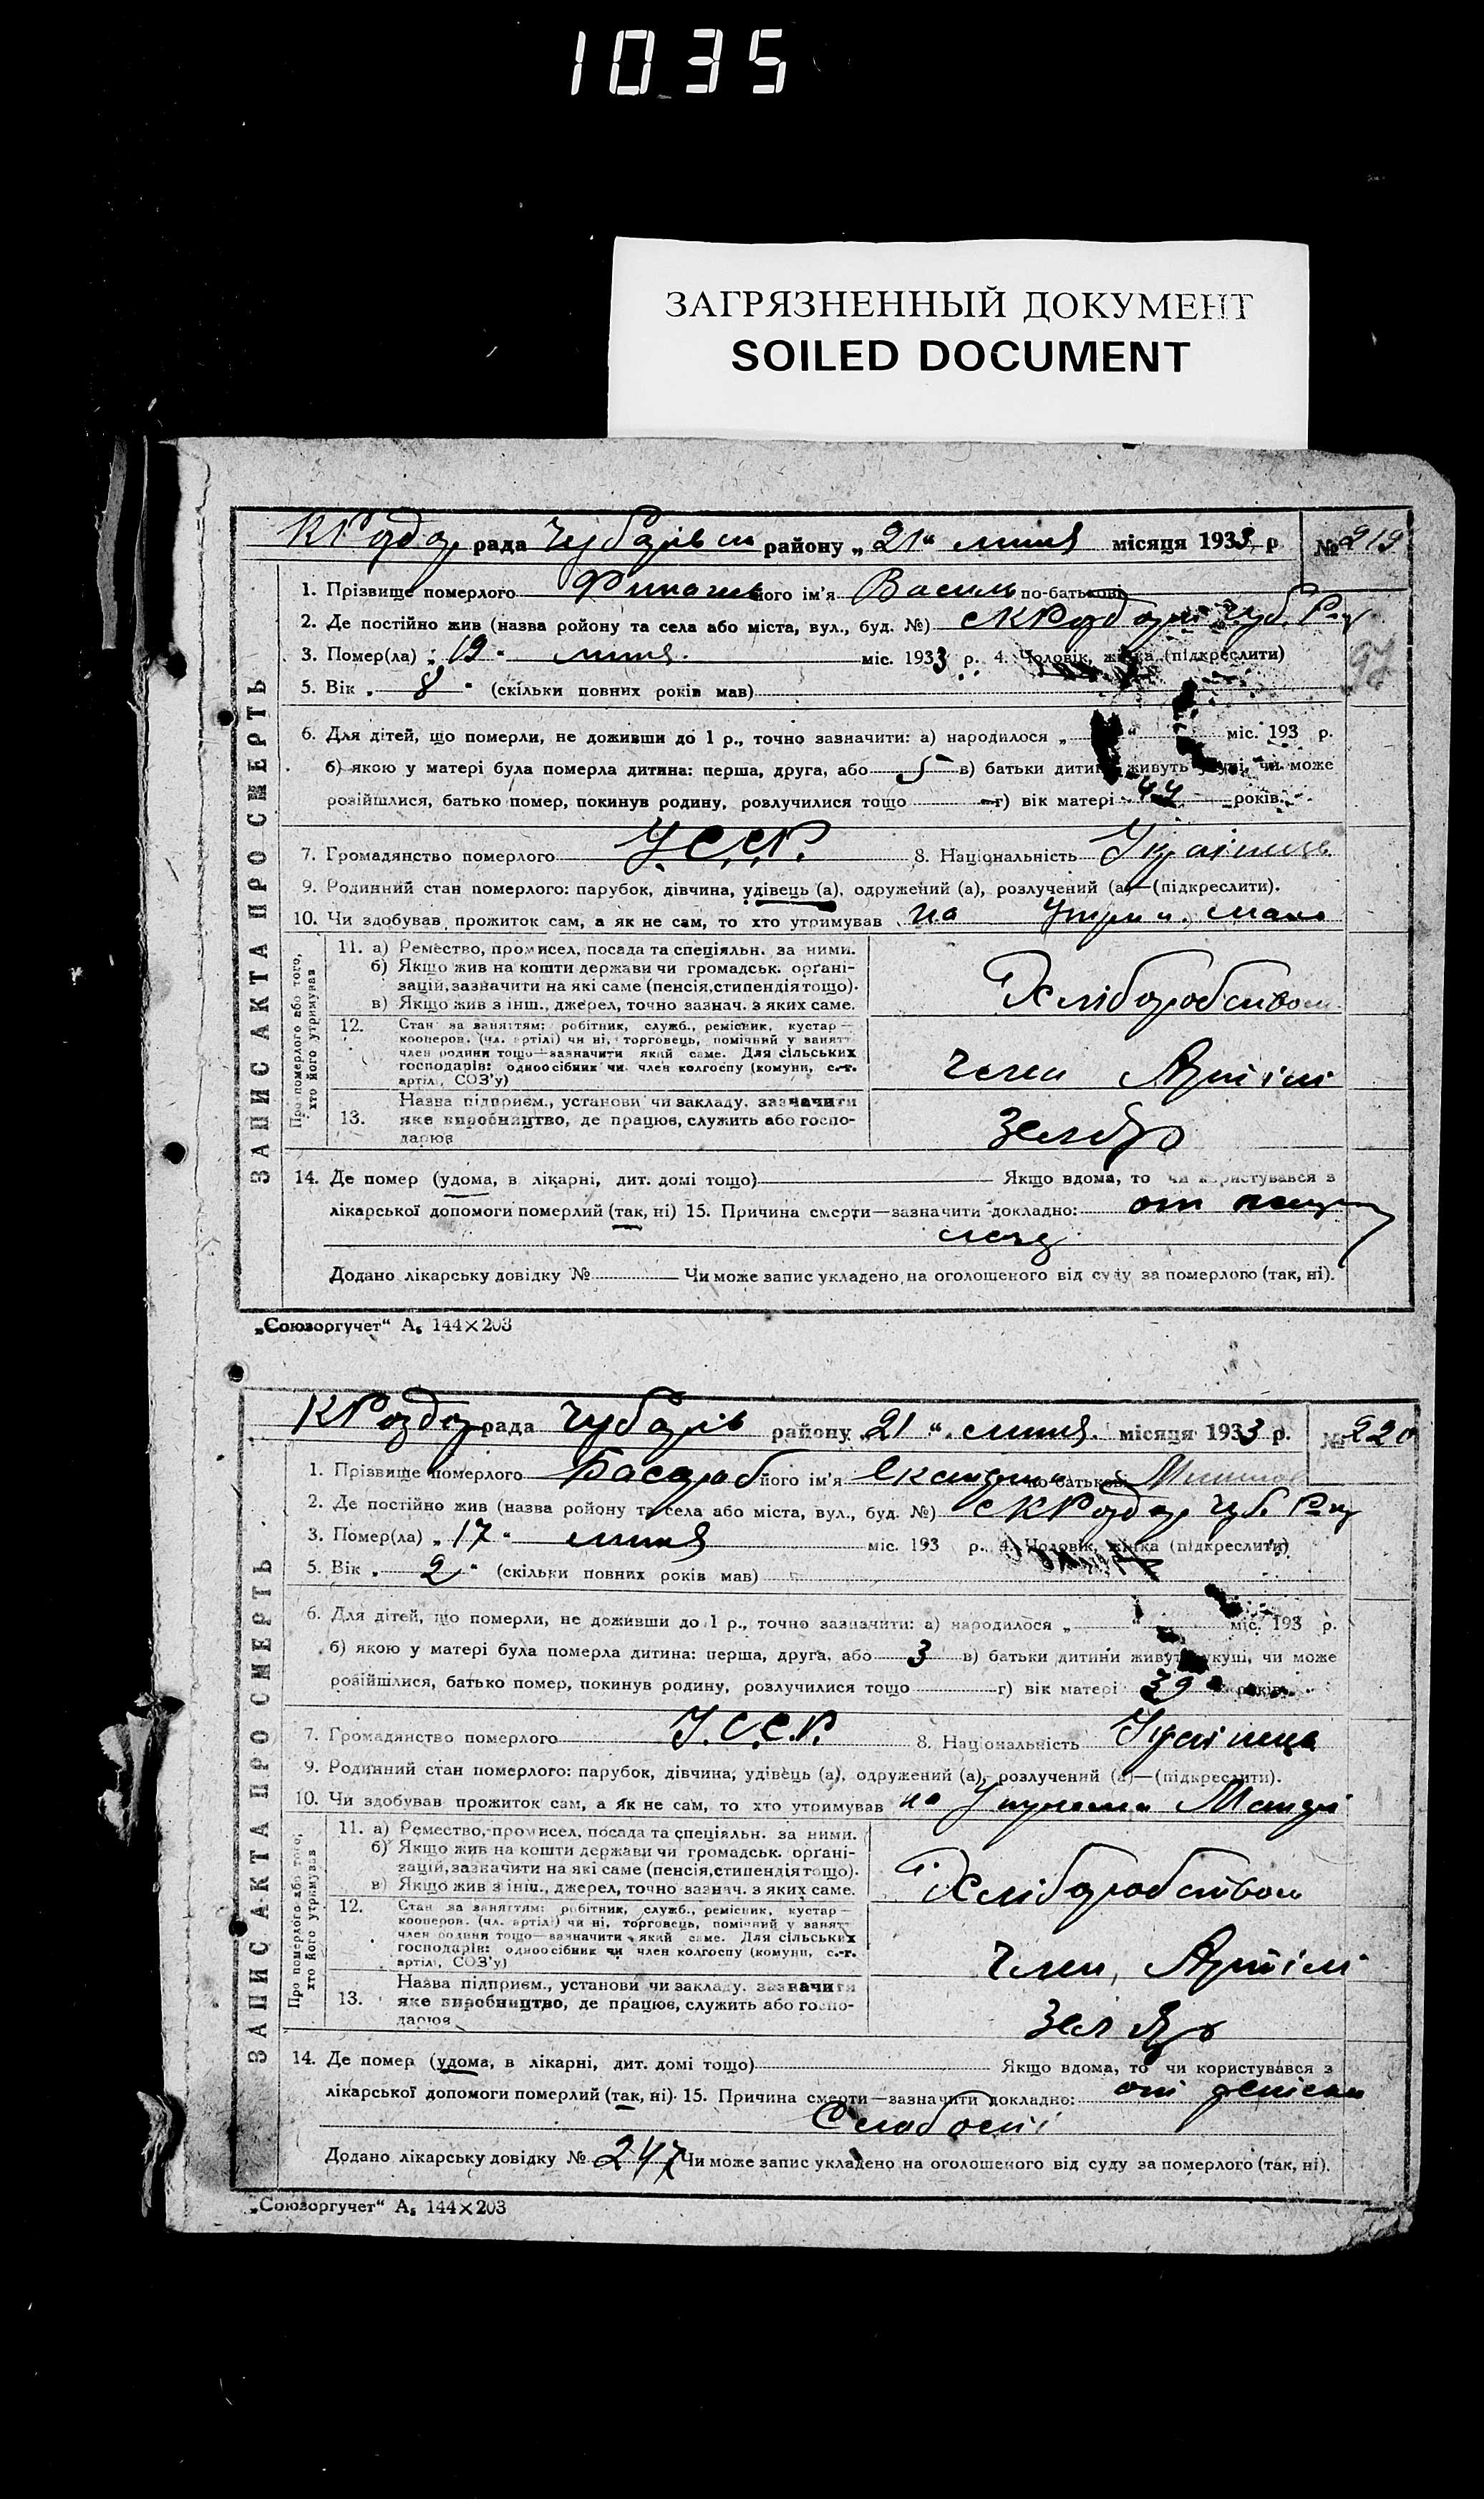 1035
ЗАГРЯЗНЕННЫЙ ДОКУМЕНТ
SOILED DOCUMENT
рада район у „21“ липня місяця 1933 р. № 219
97
ЗАПИС АКТА ПРО СМЕРТЬ
1. Прізвище померлого його ім'я Василь по-батькові
2. Де постійно жив (назва ройону та села або міста, вул., буд. №)
3. Помер(ла) „19“ липня міс. 1933 р. 4. Чоловік, жінка (підкреслити)
5. Вік „8“ (скільки повних років мав)
6. Для дітей, що померли, не доживши до 1 р., точно зазначити: а) народилося „ “ міс. 193 р.
б) якою у матері була померла дитина: перша, друга, або 5 в) батьки дитини живуть укупі, чи може
розійшлися, батько помер, покинув родину, розлучилися тощо г) вік матері 44 років
7. Громадянство померлого У.С.С.Р. 8. Національність Українець
9. Родинний стан померлого: парубок, дівчина, удівець (а), одружений (а), розлучений (а)—(підкреслити).
10. Чи здобував прожиток сам, а як не сам, то хто утримував на
Про померлого або того, хто його утримував
11. а) Ремество, промисел, посада та спеціяльн. за ними.
б) Якщо жив на кошти держави чи громадськ. орґані-
зацій, зазначити на які саме (пенсія, стипендія тощо).
в) Якщо жив з інш., джерел, точно зазнач. з яких саме.
Хліборобством
12. Стан за заняттям: робітник, служб., ремісник, кустар—
кооперов. (чл. артілі) чи ні, торговець, помічний у занятт.
член родини тощо—зазначити який саме. Для сільських
господарів: одноосібник чи член колгоспу (комуни, с.-г.
артілі, СОЗ'у)
Член Артілі
13. Назва підприєм., установи чи закладу. зазначити
яке виробництво, де працює, служить або госпо-
дарює
14. Де помер (удома, в лікарні, дит. домі тощо) Якщо вдома, то чи користувався з
лікарської допомоги померлий (так, ні) 15. Причина смерти—зазначити докладно: от
Додано лікарську довідку № Чи може запис укладено на оголошеного від суду за померлого (так, ні).
„Союзоргучет“ А₅ 144×203
рада район у „21“ липня місяця 1933 р. № 220
ЗАПИС АКТА ПРО СМЕРТЬ
1. Прізвище померлого його ім'я по-батькові
2. Де постійно жив (назва ройону та села або міста, вул., буд. №)
3. Помер(ла) „17“ липня міс. 193 р. 4. Чоловік, жінка (підкреслити)
5. Вік „2“ (скільки повних років мав)
6. Для дітей, що померли, не доживши до 1 р., точно зазначити: а) народилося „ “ міс. 193 р.
б) якою у матері була померла дитина: перша, друга, або 3 в) батьки дитини живуть укупі, чи може
розійшлися, батько помер, покинув родину, розлучилися тощо г) вік матері 39 років
7. Громадянство померлого У.С.С.Р. 8. Національність
9. Родинний стан померлого: парубок, дівчина, удівець (а), одружений (а), розлучений (а)—(підкреслити).
10. Чи здобував прожиток сам, а як не сам, то хто утримував на
Про померлого або того, хто його утримував
11. а) Ремество, промисел, посада та спеціяльн. за ними.
б) Якщо жив на кошти держави чи громадськ. орґані-
зацій, зазначити на які саме (пенсія, стипендія тощо).
в) Якщо жив з інш., джерел, точно зазнач. з яких саме.
Хліборобством
12. Стан за заняттям: робітник, служб., ремісник, кустар—
кооперов. (чл. артілі) чи ні, торговець, помічний у занятт.
член родини тощо—зазначити який саме. Для сільських
господарів: одноосібник чи член колгоспу (комуни, с.-г.
артілі, СОЗ'у)
Член Артілі
13. Назва підприєм., установи чи закладу. зазначити
яке виробництво, де працює, служить або госпо-
дарює
14. Де помер (удома, в лікарні, дит. домі тощо) Якщо вдома, то чи користувався з
лікарської допомоги померлий (так, ні) 15. Причина смерти—зазначити докладно: от
Слабості
Додано лікарську довідку № 247 Чи може запис укладено на оголошеного від суду за померлого (так, ні).
„Союзоргучет“ А₅ 144×203